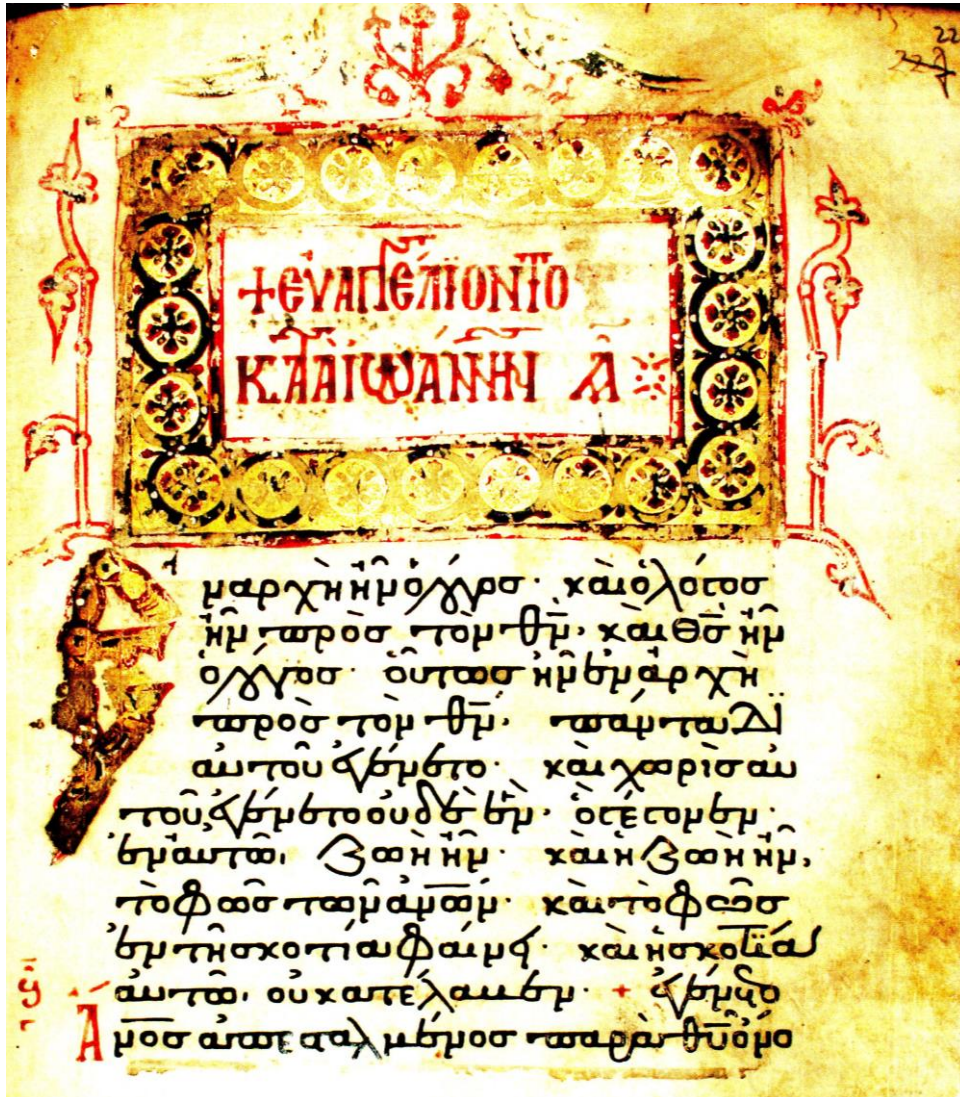 22
227
+ ΕὐΑΓΓΕΛΙΟΝ ΤΟ
ΚΑΤΑ ἸΩΑΝΝΗΝ Α
Ε ν ἀρχῆ ἦν ὁ λόγος· καὶ ὁ λόγος
ἦν πρὸς τὸν θν̄· καὶ θσ̄ ἦν
ὁ λόγος· οὗτος ἦν ἐν ἀρχῆ
πρὸς τὸν θν̄· πάντα δϊ
αυτοῦ ἐγένετο· καὶ χωρὶς αυ
τοῦ ἐγένετο οὐδὲ ἓν· ὃ γέγονεν·
ἐν αυτῶ, ζωὴ ἦν· καὶ ἡ ζωὴ ἦν,
τὸ φῶς τῶν ἀν̄ων· καὶ τὸ φῶς
ἐν τῆ σκοτία φαίνει· καὶ ἡ σκοτία
αὐτὸ, οὐ κατέλαβεν· + ἐγένετο
Α ν̄ος ἀπεσταλμένος παρὰ θῡ ὄνο